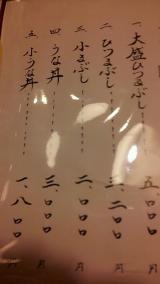 一、大盛ひつまぶし……… 五、〇〇〇円
二、ひつまぶし……… 三、二〇〇円
三、小まぶし……… 二、〇〇〇円
四、うな丼……… 三、〇〇〇円
五、小うな丼……… 一、八〇〇円